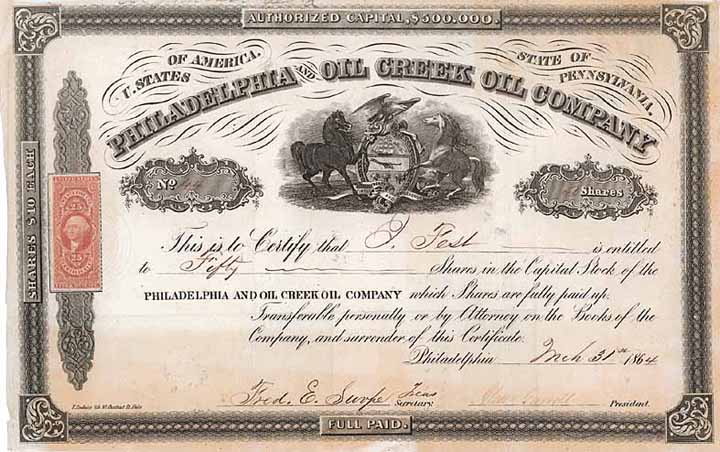 AUTHORIZED CAPITAL, $500.000.
U. STATES OF AMERICA. STATE OF PENNSYLVANIA.
PHILADELPHIA AND OIL CREEK OIL COMPANY
SHARES $10 EACH
25 25
No Shares
This is to Certify that P. Fest is entitled
to Fifty Shares in the Capital Stock of the
PHILADELPHIA AND OIL CREEK OIL COMPANY which Shares are fully paid up.
Transferable personally or by Attorney on the Books of the
Company, and surrender of this Certificate.
Philadelphia Mch 31st 1864
Fred. E. Treas
Secretary. President.
FULL PAID.